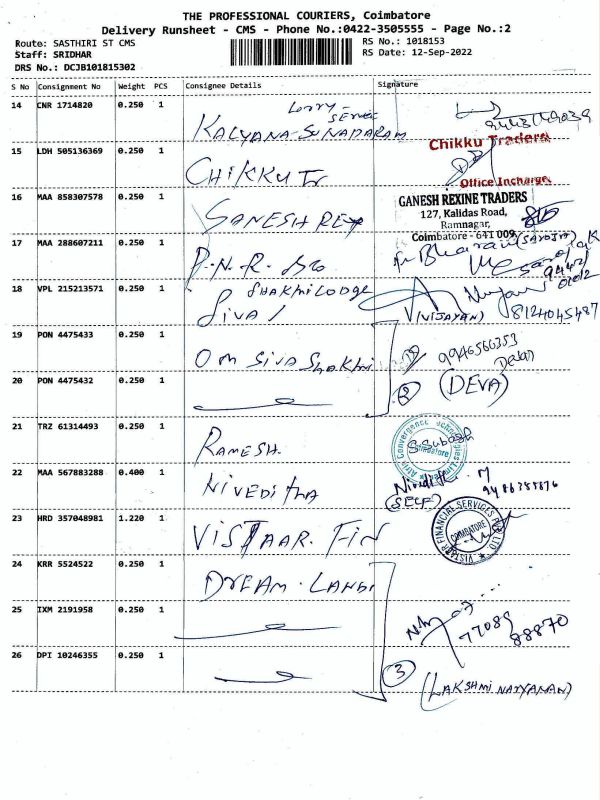 THE PROFESSIONAL COURIERS, Coimbatore
Delivery Runsheet - CMS - Phone No.:0422-3505555 - Page No.:2
Route: SASTHIRI ST CMS
Staff: SRIDHAR
DRS No.: DCJB101815302
RS No.: 1018153
RS Date: 12-Sep-2022
S No Consignment No Weight PCS Consignee Details Signature
14 CNR 1714820 0.250 1 Lorry-Service
KALYANA-SUNADARAM
15 LDH 505136369 0.250 1 CHIKKU Tr Chikku Traders
Office Incharge
16 MAA 858307578 0.250 1 GANESH REX GANESH REXINE TRADERS
127, Kalidas Road,
Ramnagar,
Coimbatore - 641 009.
17 MAA 288607211 0.250 1 P.N.R. (SAROJA)
18 VPL 215213571 0.250 1 SHAKHI LODGE
SIVA / (VIJAYAN) 8124045487
19 PON 4475433 0.250 1 OM SIVA Shakhi 9946566353
20 PON 4475432 0.250 1 2 (DEVA)
21 TRZ 61314493 0.250 1 RAMESH. S.Subash
Atrio Convergence Technologies Limited
Coimbatore
22 MAA 567883288 0.400 1 NIVEDITHA M
(SELF)
23 HRD 357048981 1.220 1 VISTAAR. FIN VISTAAR FINANCIAL SERVICES PVT LTD
COIMBATORE
24 KRR 5524522 0.250 1 DREAM. LAND
25 IXM 2191958 0.250 1 77089
88870
26 DPI 10246355 0.250 1 3 (LAKSHMI NARYANAN)